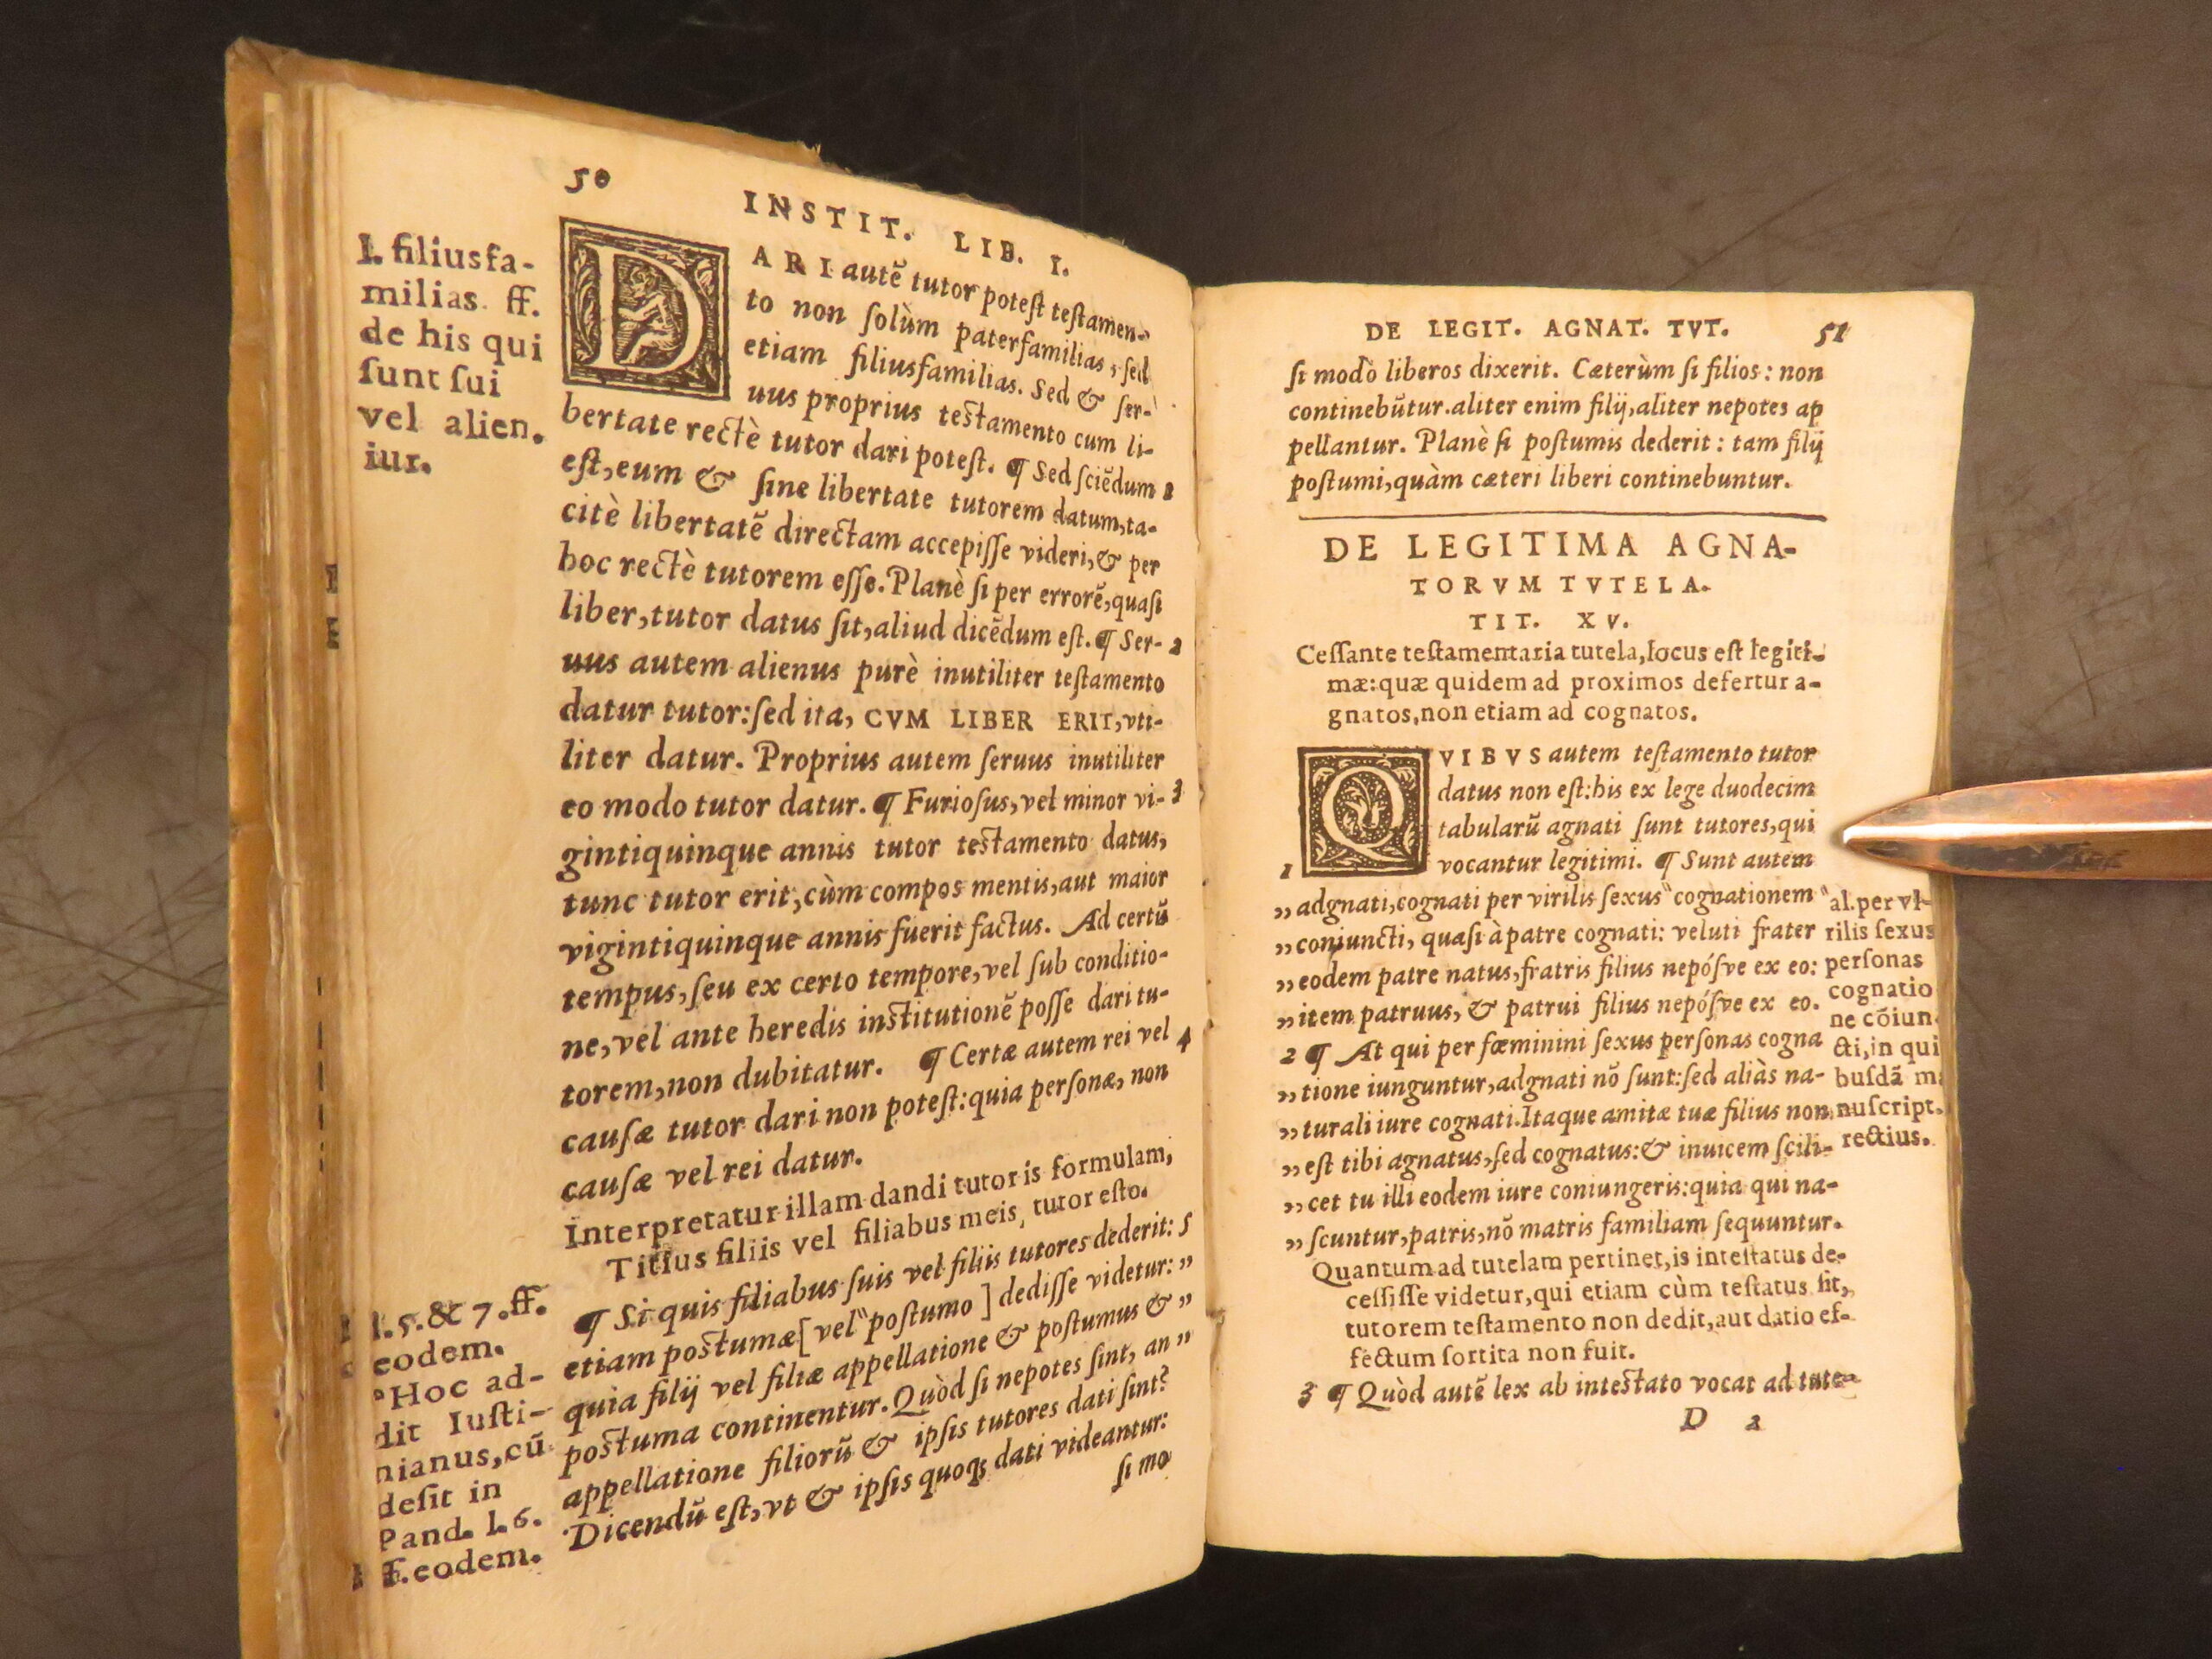 50
INSTIT. LIB. I.
l. filiusfa-
milias. ff.
de his qui
ſunt ſui
vel alien.
iur.
DARI autē tutor poteſt teſtamen-
to non ſolùm paterfamilias, ſed
etiam filiusfamilias. Sed & ſer-
uus proprius teſtamento cum li-
bertate rectè tutor dari poteſt. ¶ Sed ſciēdum 1
eſt, eum & ſine libertate tutorem datum, ta-
citè libertatē directam accepiſſe videri, & per
hoc rectè tutorem eſſe. Planè ſi per errorē, quaſi
liber, tutor datus ſit, aliud dicēdum eſt. ¶ Ser- 2
uus autem alienus purè inutiliter teſtamento
datur tutor: ſed ita, CVM LIBER ERIT, vti-
liter datur. Proprius autem ſeruus inutiliter
eo modo tutor datur. ¶ Furioſus, vel minor vi- 3
gintiquinque annis tutor teſtamento datus,
tunc tutor erit, cùm compos mentis, aut maior
vigintiquinque annis fuerit factus. Ad certū
tempus, ſeu ex certo tempore, vel ſub conditio-
ne, vel ante heredis inſtitutionē poſſe dari tu-
torem, non dubitatur. ¶ Certæ autem rei vel 4
cauſæ tutor dari non poteſt: quia perſonæ, non
cauſæ vel rei datur.
Interpretatur illam dandi tutoris formulam,
Titius filiis vel filiabus meis, tutor eſto.
¶ Si quis filiabus ſuis vel filiis tutores dederit: 5
etiam poſtumæ [ vel " poſtumo ] dediſſe videtur: "
quia filij vel filiæ appellatione & poſtumus & "
poſtuma continentur. Quòd ſi nepotes ſint, an "
appellatione filiorū & ipſis tutores dati ſint?
Dicendū eſt, vt & ipſis quoqȝ dati videantur:
ſi mo
l. 5. & 7. ff.
eodem.
"Hoc ad-
dit Iuſti-
nianus, cū
deſit in
Pand. l. 6.
ff. eodem.
DE LEGIT. AGNAT. TVT. 51
ſi modò liberos dixerit. Cæterùm ſi filios: non
continebūtur. aliter enim filij, aliter nepotes ap
pellantur. Planè ſi poſtumis dederit: tam filij
poſtumi, quàm cæteri liberi continebuntur.
DE LEGITIMA AGNA-
TORVM TVTELA.
TIT. XV.
Ceſſante teſtamentaria tutela, locus eſt legiti-
mæ: quæ quidem ad proximos defertur a-
gnatos, non etiam ad cognatos.
QVIBVS autem teſtamento tutor
datus non eſt: his ex lege duodecim
tabularū agnati ſunt tutores, qui
1 vocantur legitimi. ¶ Sunt autem
„ adgnati, cognati per virilis ſexus " cognationem
„ coniuncti, quaſi à patre cognati: veluti frater
„ eodem patre natus, fratris filius nepóſve ex eo:
„ item patruus, & patrui filius nepóſve ex eo.
2 ¶ At qui per fœminini ſexus perſonas cogna
„ tione iunguntur, adgnati nō ſunt: ſed aliàs na-
„ turali iure cognati. Itaque amitæ tuæ filius non
„ eſt tibi agnatus, ſed cognatus: & inuicem ſcili-
„ cet tu illi eodem iure coniungeris: quia qui na-
„ ſcuntur, patris, nō matris familiam ſequuntur.
Quantum ad tutelam pertinet, is inteſtatus de-
ceſſiſſe videtur, qui etiam cùm teſtatus ſit,
tutorem teſtamento non dedit, aut datio ef-
fectum ſortita non fuit.
3 ¶ Quòd autē lex ab inteſtato vocat ad tute-
D 2
" al. per vi-
rilis ſexus
perſonas
cognatio
ne cōiun
cti, in qui
buſdā ma
nuſcript.
rectius.